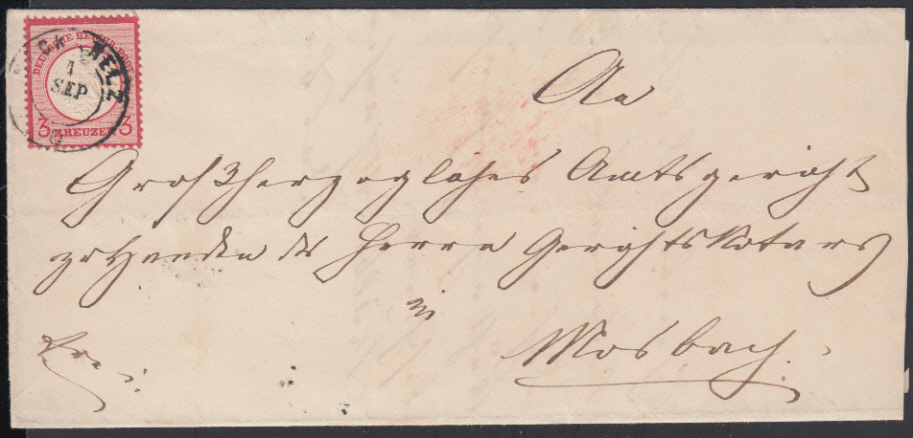 DEUTSCHE REICHS-POST
3 KREUZER 3
4
SEP
An
Großherzogliches Amtsgericht
zu Handen des Herrn Gerichtsnotars
in
Mosbach.
frei.